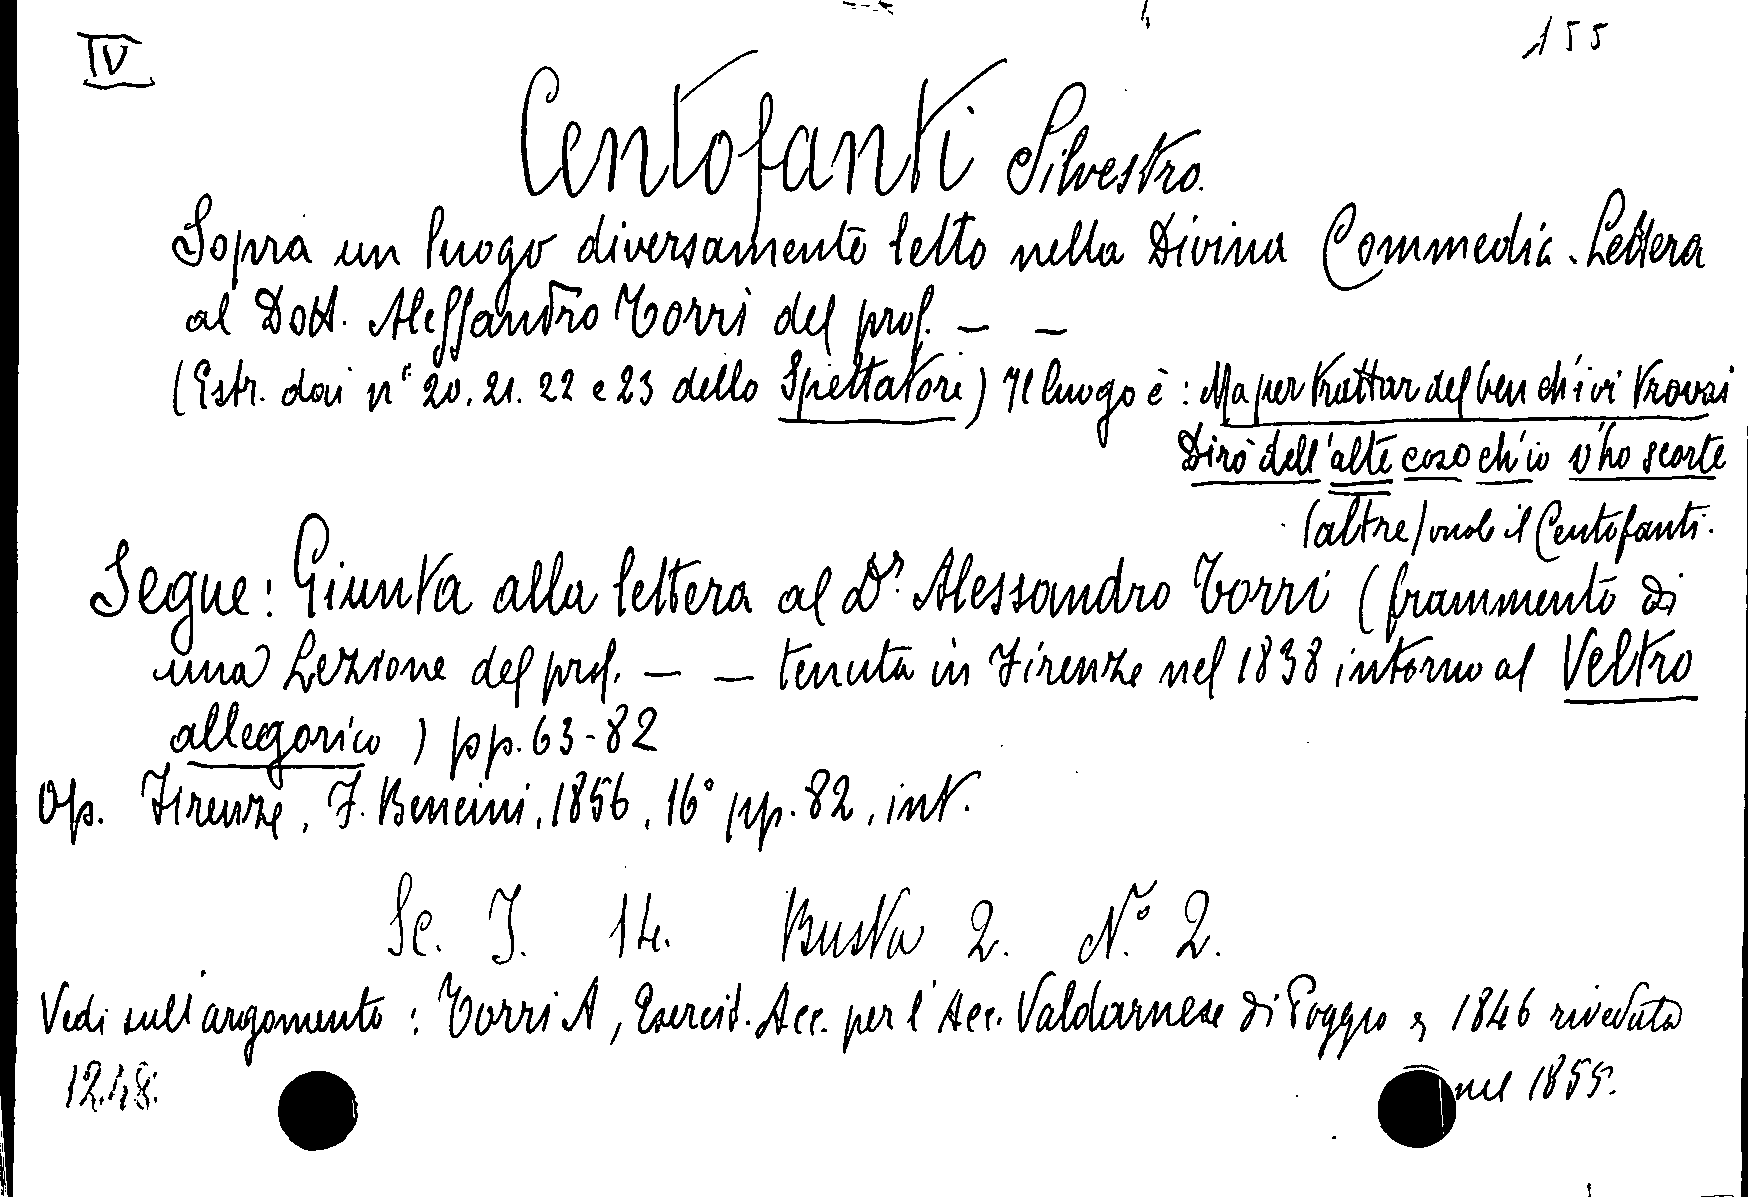 IV
155
Centofanti Silvestro.
Sopra un luogo diversamente letto nella Divina Commedia. Lettera
al Dott. Alessandro Torri del prof. — —
(Estr. dai n.i 20. 21. 22 e 23 dello Spettatore) Il luogo è: Ma per trattar del ben ch'ivi trovai
Dirò dell'alte cose ch'io v'ho scorte
(altre) vuole il Centofanti.
Segue: Giunta alla lettera al Dr. Alessandro Torri (frammento di
una Lezione del prof. — — tenuta in Firenze nel 1838 intorno al Veltro
allegorico) pp. 63-82
Op. Firenze, F. Bencini, 1856, 16° pp. 82, int.
Sc. I. 14. Busta 2. N.° 2.
Vedi sull'argomento: Torri A, Esercit. Acc. per l'Acc. Valdarnese di Poggio 1846 riveduta
1248.
nel 1855.